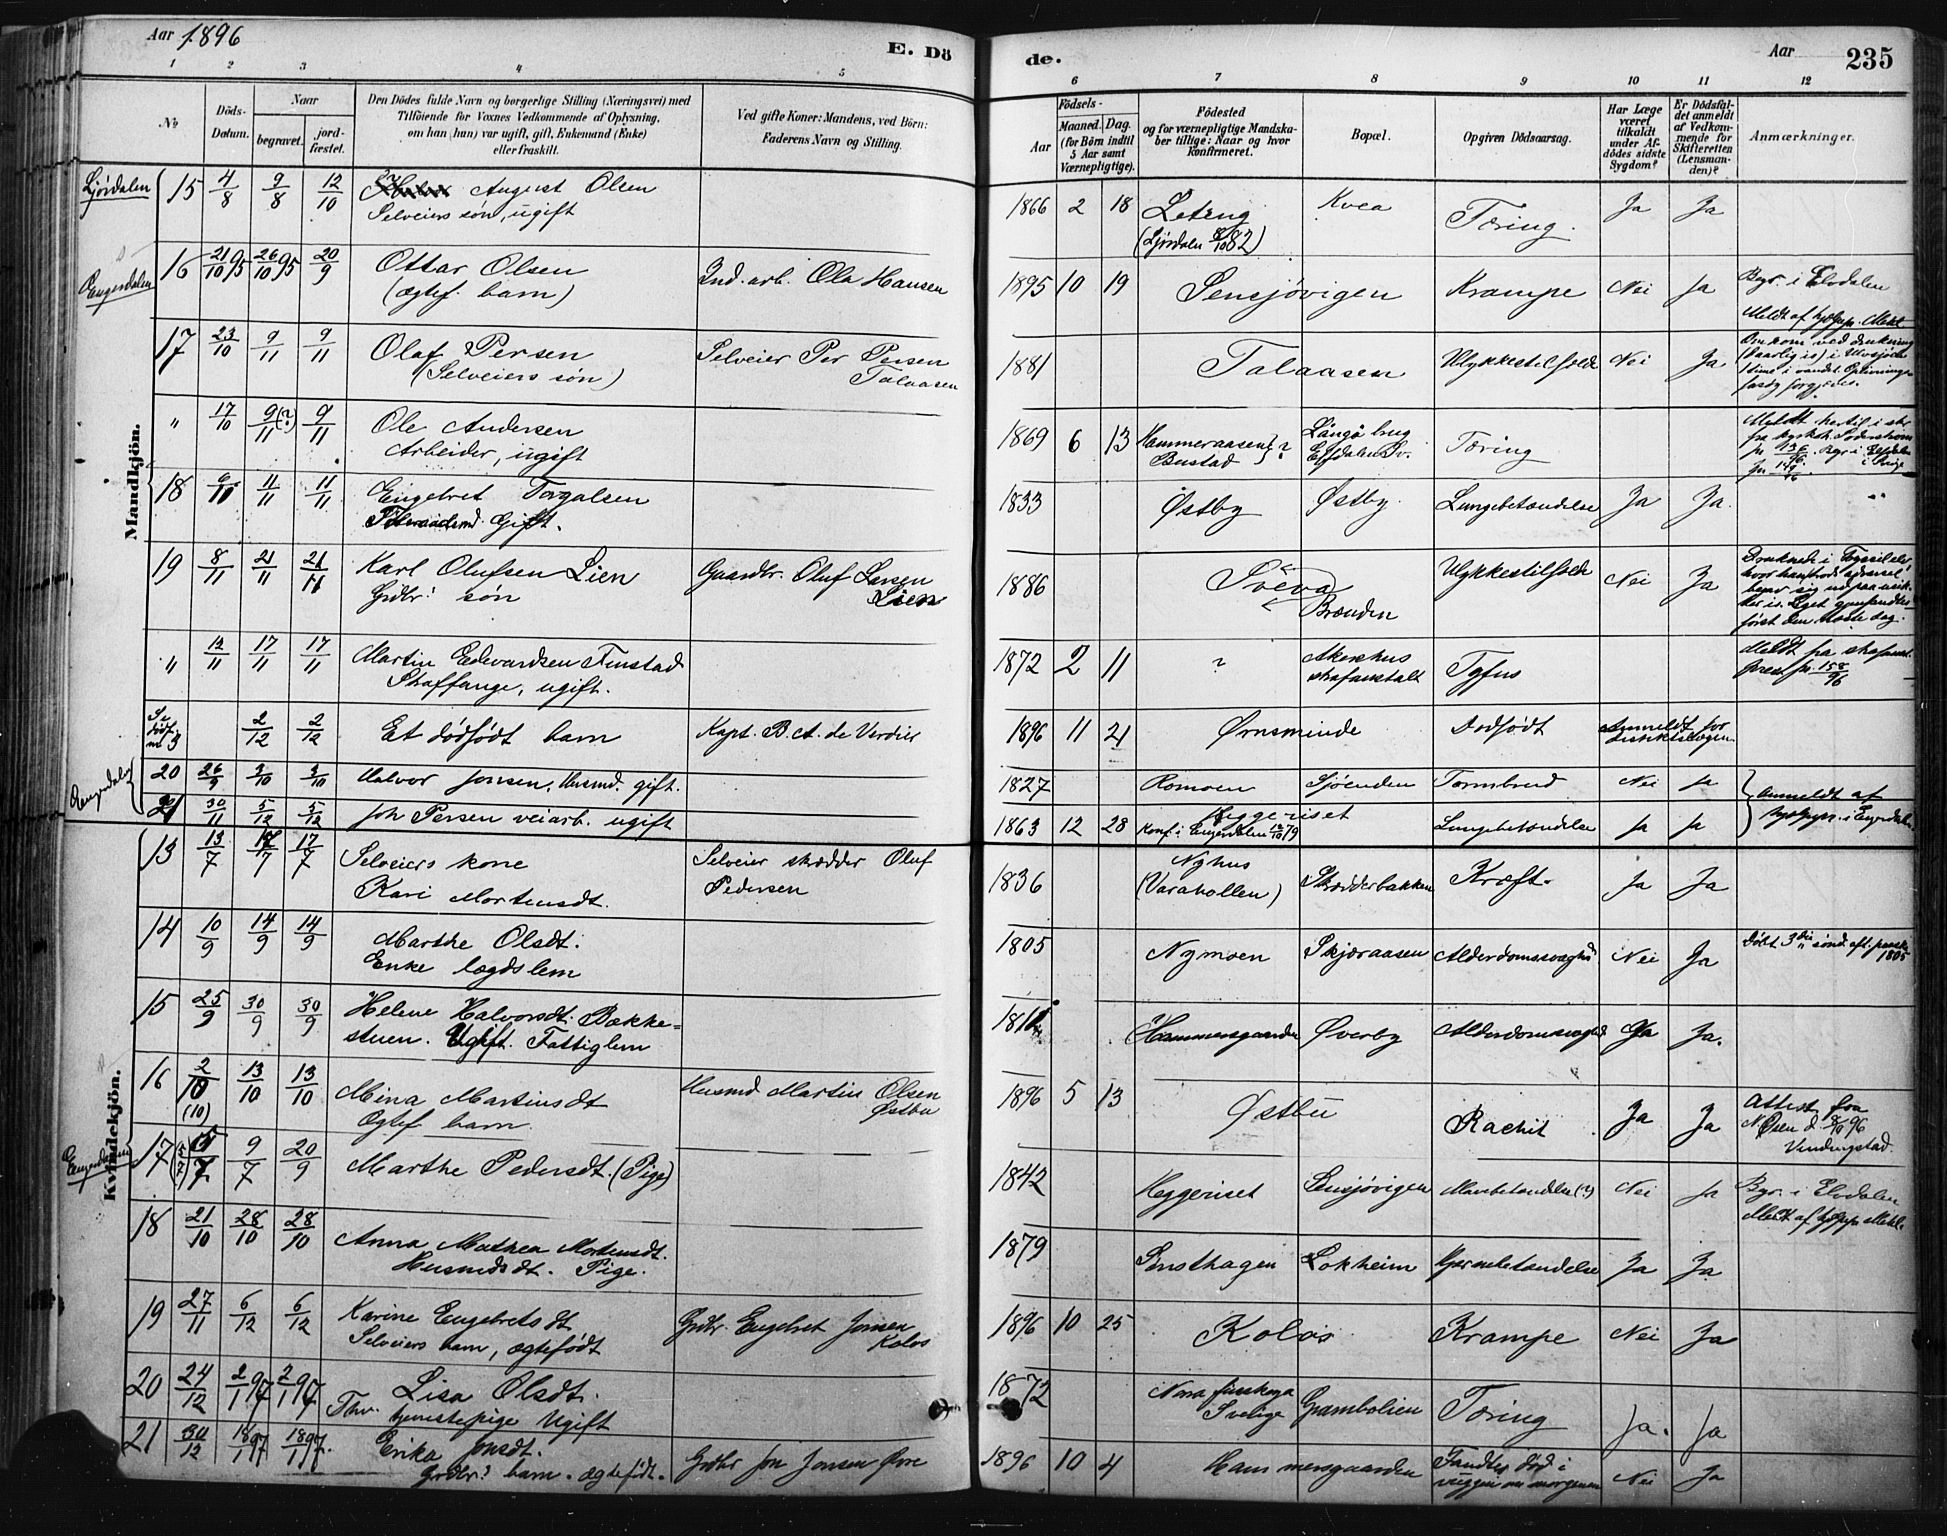 Aar 1896
E. Dö
de.
Aar
235
1 2 3 4 5 6 7 8 9 10 11 12
No
Döds-Datum.
Naar
begravet.
jord-fæstet.
Den Dödes fulde Navn og borgerlige Stilling (Næringsvei) med
Tilföiende for Voxnes Vedkommende af Oplysning,
om han (hun) var ugift, gift, Enkemand (Enke)
eller fraskilt.
Ved gifte Koner: Mandens, ved Börn:
Faderens Navn og Stilling.
Födsels-
Aar
Maaned. Dag.
(for Börn indtil
5 Aar samt
Værnepligtige).
Födested
og for værnepligtige Mandska-
ber tillige: Naar og hvor
konfirmeret.
Bopæl.
Opgiven Dödsaarsag.
Har Læge
været
tilkaldt
under Af-
dödes sidste
Sygdom?
Er Dödsfal-
det anmeldt
af Vedkom-
mende for
Skifteretten
(Lensman-
den)?
Anmærkninger.
Mandkjön.
Ljørdalen 15 4/8 9/8 12/10 August Olsen
Selveiers søn, ugift
1866 2 18 Letrng Kvea Tæring. Ja Ja
(Ljørdalen 8/10 82)
Engerdalen 16 21/10 95 26/10 95 20/9 Ottar Olsen Ind. arb. Ola Hansen
(ægtef. barn)
1895 10 19 Sensjøvigen Krampe Nei Ja Begr. i Elvdalen
Meldt af
17 23/10 9/11 9/11 Olaf Persen Selveier Per Persen
(Selveiers søn) Talaasen
1881 Talaasen Ulykkestilfælde Nei Ja Omkom ved drukning
(daarlig is) i Ulvsjøen
" 17/10 9/11 (?) 9/11 Ole Andersen
Arbeider, ugift
1869 6 13 Hammeraasen Långå brug Tæring
Bustad }? Elfdalen Sv.
18 11/11 11/11 Engebret Torgalsen
Gift.
1833 Østby Østby. Lungebetændelse Ja Ja.
19 8/11 21/11 21/11 Karl Olufsen Lien Gaardbr. Oluf Larsen
Grdbr. søn Lien
1886 Sveva Ulykkestilfælde Nei Ja
Brænden
først den næste dag.
" 12/11 17/11 17/11 Martin Edvardsen Finstad
Straffange, ugift.
1872 2 11 ? Akershus Tyfus Meldt fra
strafanstalt 158/96
Se dødf. nr 3 2/12 2/12 Et dødfødt barn Kapt. B. A. de Verdier
1896 11 21 Ørnsminde Dødfødt Anmeldt for
distriktslægen
Engerdalen 20 26/9 3/10 3/10 Halvor Jonsen, Husmd. gift.
1827 Romoen Sjøenden Nei Ja Anmeldt af
21 30/11 5/12 5/12 Joh Persen veiarb. ugift
1863 12 28 Heggeriset Lungebetændelse Ja Ja i Engerdalen
Konf. i Engerdalen 12/10 79
Kvindekjön.
13 13/7 17/7 17/7 Selveiers kone Selveier skrædder Oluf
Kari Mortensdt. Pedersen
1836 Nyhus Skrædderbakken Kræft. Ja Ja
(Varahollen)
14 10/9 14/9 14/9 Marthe Olsdt.
Enke lægdslem
1805 Nymoen Skjæraasen Alderdomssvaghd Nei Ja Døbt 3die sønd. eft. paaske
1805
15 25/9 30/9 30/9 Helene Halvorsdt. Bække=
stuen. Ugift. Fattiglem
Hammersgaarden Øverby Alderdomssvaghed Ja Ja.
16 2/10 13/10 13/10 Mina Martinsdt Husmd Martin Olsen
(10) Ægtef barn Østbu
1896 5 13 Østbu Rachit Ja Ja Attest fra
N. Olsen d. 96
Vendingstad.
Engerdalen 17 9/7 20/9 Marthe Pedersdt. (Pige)
1842 Heggeriset Sensjøvigen Mavebetændelse (?) Nei Ja Begr. i Elvdalen
Meldt af
18 21/10 28/10 28/10 Anna Mathea Mortensdt.
Husmdsdt. Pige.
1879 Lokheim Hjernebetændelse Ja Ja
19 27/11 6/12 6/12 Karine Engebretsdt Grdbr. Engebret Jonsen
Selveiers barn, ægtefødt Kolos
1896 10 25 Kolos Krampe Nei Ja
20 24/12 2/1 97 2/1 97 Lisa Olsdt.
Fhv. tjenestepige Ugift
1872 Nora finskoga Grambolien Tæring Ja. Ja
Sverige
21 30/12 18/1 97 18/1 97. Erika Jonsdt. Grdbr Jon Jonsen Øvre
Grdbr.s barn. ægtefødt.
1896 10 4 Hammersgaarden Fandtes død i Nei Ja
vuggen om morgenen